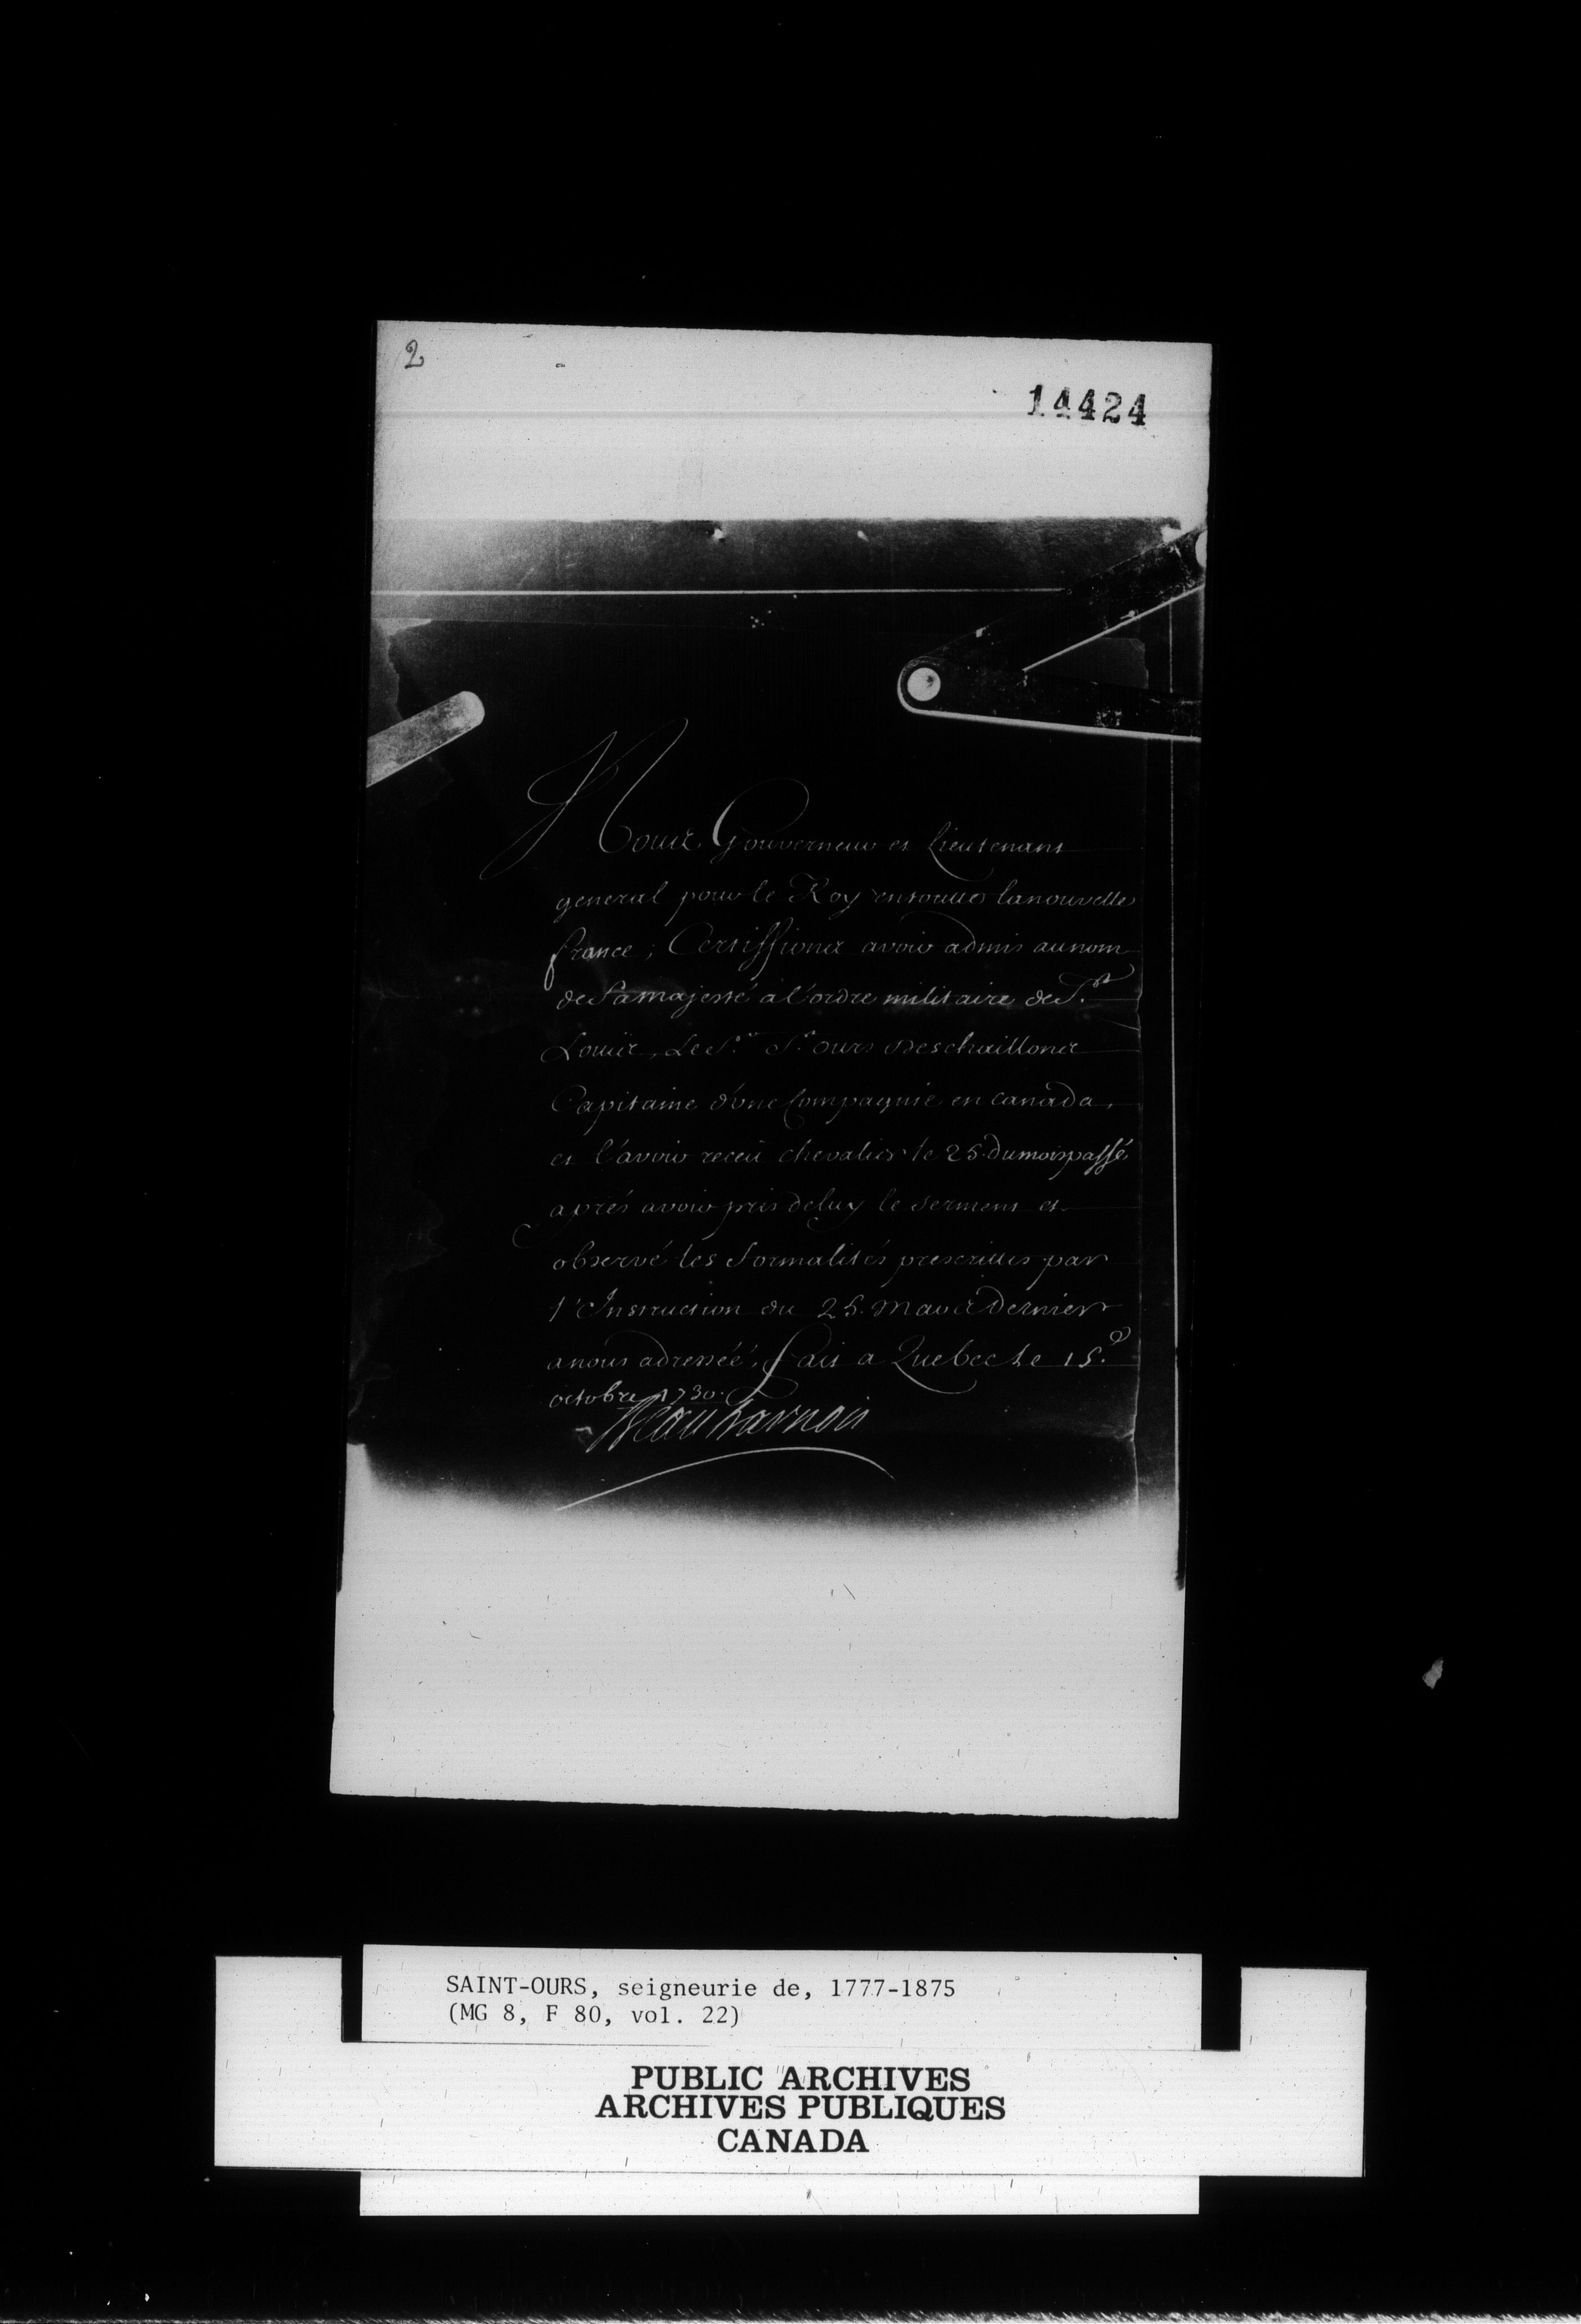 2
14424
Nous, Gouverneur et Lieutenant
general pour le Roy en toutte la nouvelle
france; Certiffions avoir admis au nom
de Sa majesté à l'ordre militaire de St.
Louis, Le Sr. St. ours Deschaillons
Capitaine d'une Compagnie en Canada,
et l'avoir receü chevalier le 25. du mois passé
aprés avoir pris de luy le serment et
observé les formalités prescrittes par
l'Instruction du 25. Mars dernier
a nous adressée, fait a Quebec le 15.e
octobre 1730.
Beauharnois
SAINT-OURS, seigneurie de, 1777-1875
(MG 8, F 80, vol. 22)
PUBLIC ARCHIVES
ARCHIVES PUBLIQUES
CANADA